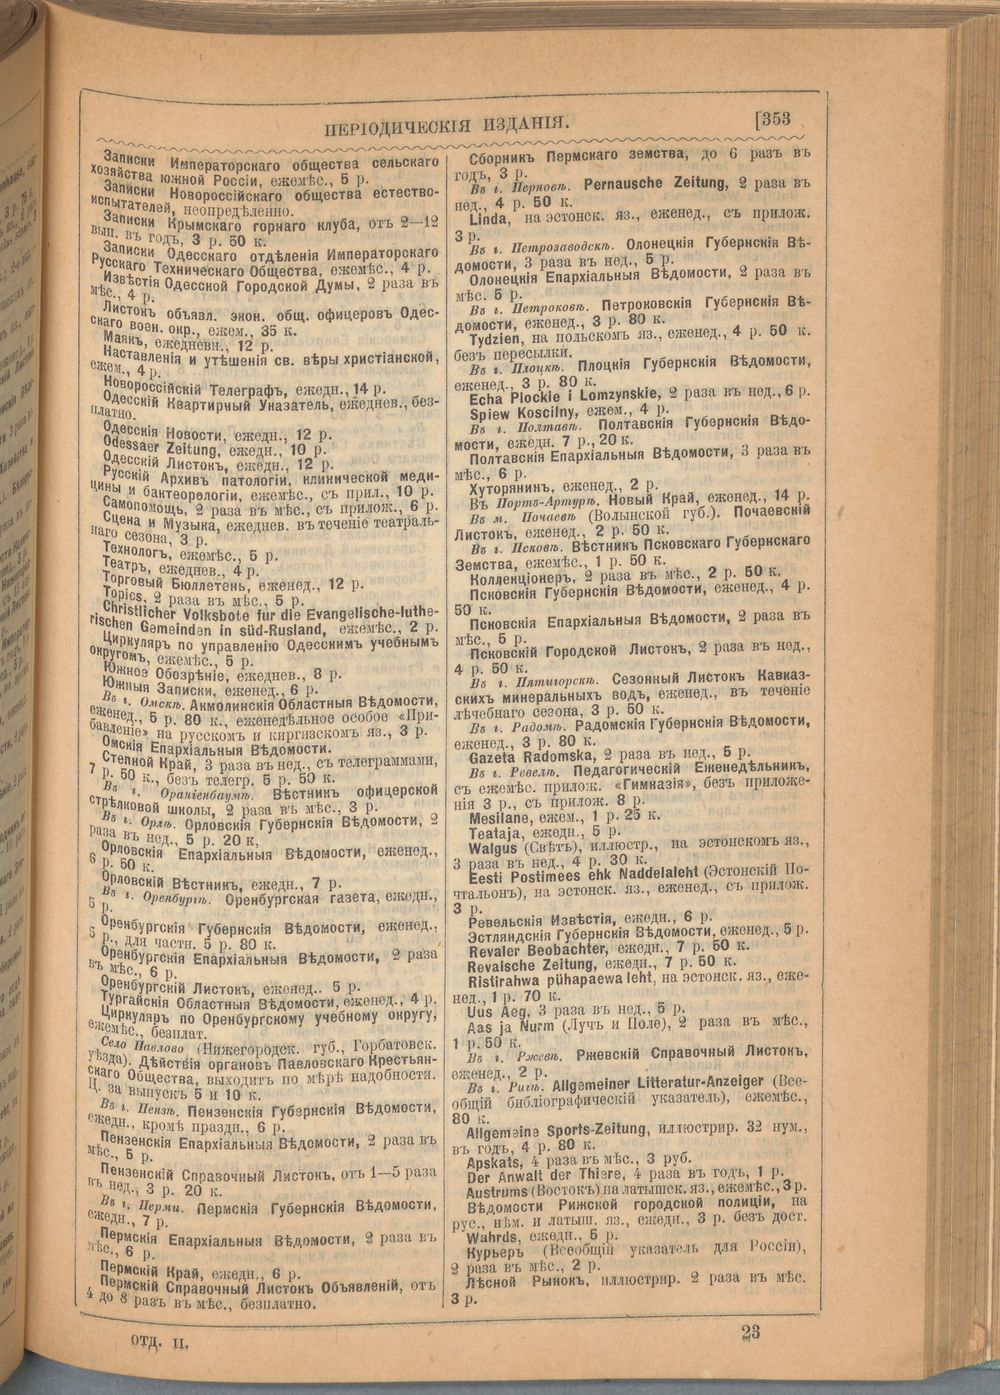 ПЕРІОДИЧЕСКІЯ ИЗДАНІЯ.
[353
Записки Императорскаго общества сельскаго
хозяйства южной Россіи, ежемѣс., 5 р.
Записки Новороссійскаго общества естество-
испытателей, неопредѣленно.
Записки Крымскаго горнаго клуба, отъ 2—12
вып. въ годъ, 3 р. 50 к.
Записки Одесскаго отдѣленія Императорскаго
Русскаго Техническаго Общества, ежемѣс., 4 р.
Извѣстія Одесской Городской Думы, 2 раза въ
мѣс., 4 р.
Листокъ объявл. экон. общ. офицеровъ Одес-
скаго воен. окр., ежем., 35 к.
Маякъ, ежедневн., 12 р.
Наставленія и утѣшенія св. вѣры христіанской,
ежем., 4 р.
Новороссійскій Телеграфъ, ежедн., 14 р.
Одесскій Квартирный Указатель, ежеднев., без-
платно.
Одесскія Новости, ежедн., 12 р.
Odessaer Zeitung, ежедн., 10 р.
Одесскій Листокъ, ежедн., 12 р.
Русскій Архивъ патологіи, клинической меди-
цины и бактеорелогіи, ежемѣс., съ прил., 10 р.
Самопомощь, 2 раза въ мѣс., съ прилож., 6 р.
Сцена и Музыка, ежеднев. въ теченіе театраль-
наго сезона, 3 р.
Технологъ, ежемѣс., 5 р.
Театръ, ежеднев., 4 р.
Торговый Бюллетень, еженед., 12 р.
Topics, 2 раза въ мѣс., 5 р.
Christlicher Volksbote für die Evangelische-luthe-
rischen Gemeinden in süd-Rusland, ежемѣс., 2 р.
Циркуляръ по управленію Одесскимъ учебнымъ
округомъ, ежемѣс., 5 р.
Южное Обозрѣніе, ежеднев., 8 р.
Южныя Записки, еженед., 6 р.
Въ г. Омскѣ. Акмолинскія Областныя Вѣдомости,
еженед., 5 р. 80 к., еженедѣльное особое «При-
бавленіе» на русскомъ и киргизскомъ яз., 3 р.
Омскія Епархіальныя Вѣдомости.
Степной Край, 3 раза въ нед., съ телеграммами,
7 р. 50 к., безъ телегр. 5 р. 50 к.
Въ г. Ораніенбаумѣ. Вѣстникъ офицерской
стрѣлковой школы, 2 раза въ мѣс., 3 р.
Въ г. Орлѣ. Орловскія Губернскія Вѣдомости, 2
раза въ нед., 5 р. 20 к.
Орловскія Епархіальныя Вѣдомости, еженед.,
6 р. 50 к.
Орловскій Вѣстникъ, ежедн., 7 р.
Въ г. Оренбургѣ. Оренбургская газета, ежедн.,
5 р.
Оренбургскія Губернскія Вѣдомости, еженед.,
5 р., для частн. 5 р. 80 к.
Оренбургскія Епархіальныя Вѣдомости, 2 раза
въ мѣс., 6 р.
Оренбургскій Листокъ, еженед.. 5 р.
Тургайскія Областныя Вѣдомости, еженед., 4 р.
Циркуляръ по Оренбургскому учебному округу,
ежемѣс., безплат.
Село Павлово (Нижегородск. губ., Горбатовск.
уѣзда). Дѣйствія органовъ Павловскаго Крестьян-
скаго Общества, выходитъ по мѣрѣ надобности.
Ц. за выпускъ 5 и 10 к.
Въ г. Пензѣ. Пензенскія Губернскія Вѣдомости,
ежедн., кромѣ праздн., 6 р.
Пензенскія Епархіальныя Вѣдомости, 2 раза въ
мѣс., 5 р.
Пензенскій Справочный Листокъ, отъ 1—5 раза
въ нед., 3 р. 20 к.
Въ г. Перми. Пермскія Губернскія Вѣдомости,
ежедн., 7 р.
Пермскія Епархіальныя Вѣдомости, 2 раза въ
мѣс., 6 р.
Пермскій Край, ежедн., 6 р.
Пермскій Справочный Листокъ Объявленій, отъ
4 до 8 разъ въ мѣс., безплатно.
Сборникъ Пермскаго земства, до 6 разъ въ
годъ, 3 р.
Въ г. Перновѣ. Pernausche Zeitung, 2 раза въ
нед., 4 р. 50 к.
Linda, на эстонск. яз., еженед., съ прилож.
3 р.
Въ г. Петрозаводскѣ. Олонецкія Губернскія Вѣ-
домости, 3 раза въ нед., 5 р.
Олонецкія Епархіальныя Вѣдомости, 2 раза въ
мѣс. 5 р.
Въ г. Петроковѣ. Петроковскія Губернскія Вѣ-
домости, еженед., 3 р. 80 к.
Tydzien, на польскомъ яз., еженед., 4 р. 50 к.
безъ пересылки.
Въ г. Плоцкѣ. Плоцкія Губернскія Вѣдомости,
еженед., 3 р. 80 к.
Echa Plockie i Lomzynskie, 2 раза въ нед., 6 р.
Spiew Koscilny, ежем., 4 р.
Въ г. Полтавѣ. Полтавскія Губернскія Вѣдо-
мости, ежедн. 7 р., 20 к.
Полтавскія Епархіальныя Вѣдомости, 3 раза въ
мѣс., 6 р.
Хуторянинъ, еженед., 2 р.
Въ Портъ-Артурѣ. Новый Край, еженед., 14 р.
Въ м. Почаевѣ (Волынской губ.). Почаевскій
Листокъ, еженед., 2 р. 50 к.
Въ г. Псковѣ. Вѣстникъ Псковскаго Губернскаго
Земства, ежемѣс., 1 р. 50 к.
Коллекціонеръ, 2 раза въ мѣс., 2 р. 50 к.
Псковскія Губернскія Вѣдомости, еженед., 4 р.
50 к.
Псковскія Епархіальныя Вѣдомости, 2 раза въ
мѣс., 5 р.
Псковскій Городской Листокъ, 2 раза въ нед.,
4 р. 50 к.
Въ г. Пятигорскѣ. Сезонный Листокъ Кавказ-
скихъ минеральныхъ водъ, еженед., въ теченіе
лѣчебнаго сезона, 3 р. 50 к.
Въ г. Радомѣ. Радомскія Губернскія Вѣдомости,
еженед., 3 р. 80 к.
Gazeta Radomska, 2 раза въ нед., 5 р.
Въ г. Ревелѣ. Педагогическій Еженедѣльникъ,
съ ежемѣс. прилож. «Гимназія», безъ приложе-
нія 3 р., съ прилож. 8 р.
Mesilane, ежем., 1 р. 25 к.
Teataja, ежедн., 5 р.
Walgus (Свѣтъ), иллюстр., на эстонскомъ яз.,
3 раза въ нед., 4 р. 30 к.
Eesti Postimees ehk Naddelaleht (Эстонскій По-
чтальонъ), на эстонск. яз., еженед., съ прилож.
3 р.
Ревельскія Извѣстія, ежедн., 6 р.
Эстляндскія Губернскія Вѣдомости, еженед., 5 р.
Revaler Beobachter, ежедн., 7 р. 50 к.
Revalsche Zeitung, ежедн., 7 р. 50 к.
Ristirahwa pühapaewa leht, на эстонск. яз., еже-
нед., 1 р. 70 к.
Uus Aeg, 3 раза въ нед., 5 р.
Aas ja Nurm (Лучъ и Поле), 2 раза въ мѣс.,
1 р. 50 к.
Въ г. Ржевѣ. Ржевскій Справочный Листокъ,
еженед., 2 р.
Въ г. Ригѣ. Allgemeiner Litteratur-Anzeiger (Все-
общій библіографическій указатель), ежемѣс.,
80 к.
Allgemeine Sports-Zeitung, иллюстрир. 32 нум.,
въ годъ, 4 р. 80 к.
Apskats, 4 раза въ мѣс., 3 руб.
Der Anwalt der Thiere, 4 раза въ годъ, 1 р.
Austrums (Востокъ) на латышск. яз., ежемѣс., 3 р.
Вѣдомости Рижской городской полиціи, на
рус., нѣм. и латыш. яз., ежедн., 3 р. безъ дост.
Wahrds, ежедн., 5 р.
Курьеръ (Всеобщій указатель для Россіи),
2 раза въ мѣс., 2 р.
Лѣсной Рынокъ, иллюстрир. 2 раза въ мѣс.
3 р.
ОТД. II.
23